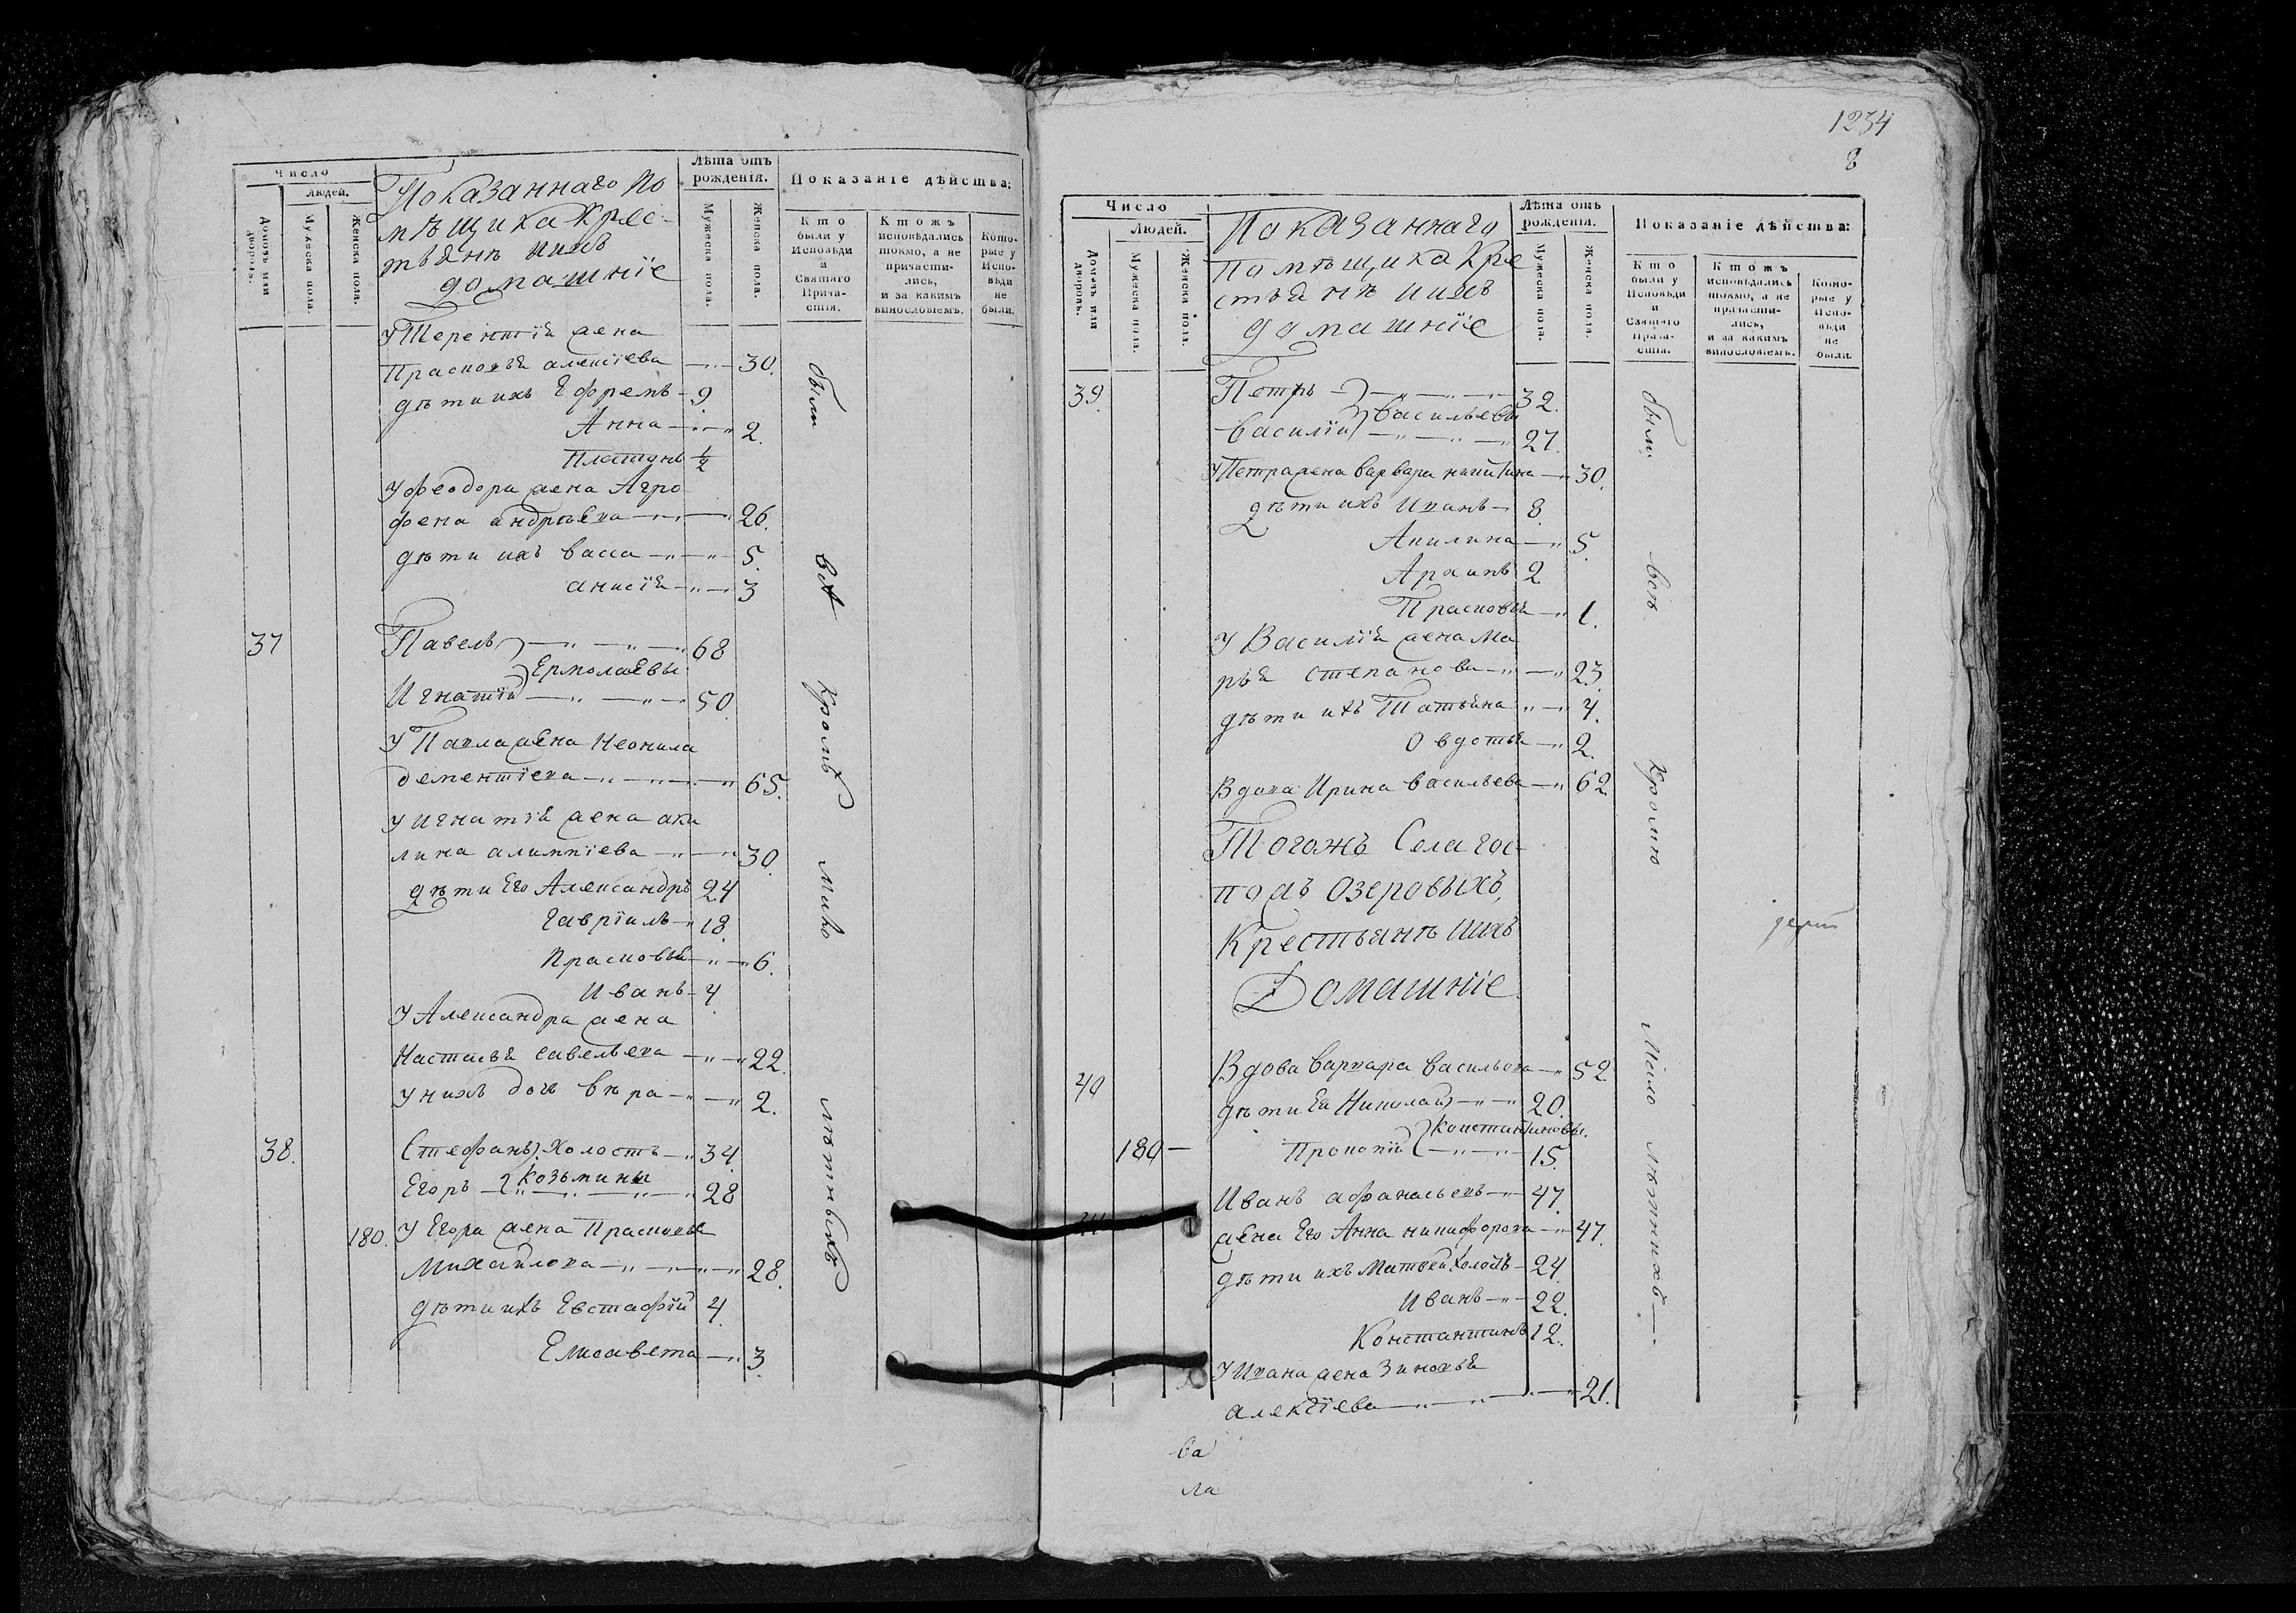 Число
Людей.
Домовъ или дворовъ.
Мужеска пола.
Женска пола.
Показаннаго по
мѣщика крес-
тьянѣ иихъ
домашніе
Лѣта отъ рожденія.
Мужеска пола.
Женска пола.
Показаніе дѣйства:
Кто были у Исповѣди и Святаго Причастія.
Ктожъ исповѣдались токмо, а не причастились, и за какимъ винословіемъ.
Которые у Исповѣди не были.
У Терентія жена
Прасковья алексіева 30.
дѣти ихъ Ефремъ 9.
Анна 2.
Платонъ 1/2
У Феодора жена Агро
фена андрѣева 26.
дѣти ихъ васса 5.
анисія 3
37 Павелъ 68
Ермолаевы
Игнатій 50
У Павла жена Неонила
дементіева 65.
У игнатія жена аки
лина алимпіева 30.
дѣти Его Александръ 24
Гавріилъ 18.
Прасковья 6.
Иванъ 4.
У Александра жена
Настасья савельева 22.
У нихъ дочь вѣра 2.
38. Стефанъ холостъ 34.
Козьмины
Егоръ 28
180. У Егора жена Прасковья
Михайлова 28.
дѣти ихъ Евстафій 4.
Елисавета 3.
были всѣ кромѣ мало лѣтныхъ
1234
8
Число
Людей.
Домовъ или дворовъ.
Мужеска пола.
Женска пола.
Показаннаго
помѣщика кре
стья нѣ иихъ
домашніе
Лѣта отъ рожденія.
Мужеска пола.
Женска пола.
Показаніе дѣйства:
Кто были у Исповѣди и Святаго Причастія.
Ктожъ исповѣдались токмо, а не причастились, и за какимъ винословіемъ.
Которые у Исповѣди не были.
39. Петръ 32.
васильевы
василій 27.
У Петра жена варвара никитина 30.
дѣти ихъ Иванъ 8.
Акилина 5.
Архипъ 2
Прасковья 1.
У Василія жена Ма
рья степанова 23.
дѣти ихъ Татьяна 4.
Овдотья 2.
Вдова Ирина васильева 62.
Тогожъ Села гос
подъ Озеровыхъ,
Крестьянѣ иихъ
Домашніе
40 Вдова варвара васильева 52.
дѣти Ея Николай 20.
Константиновы.
180 Прокопій 15.
41 Иванъ афанасьевъ 47.
жена Его Анна никифорова 47.
дѣти ихъ Матвей холостъ 24.
иванъ 22.
Константинъ 12.
У Ивана жена Зиновья
алексіева 21.
были всѣ кромѣ мало лѣтнихъ
ва
ла